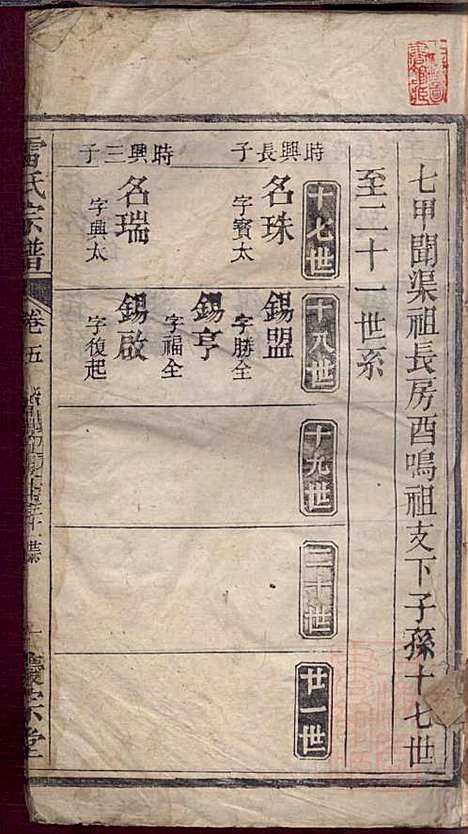 七甲聞渠祖長房酉鳴祖支下子孫十七世
至二十一世系
十七世
十八世
十九世
二十世
廿一世
時興長子
名珠
字寶太
錫盟
字勝全
錫亨
字福全
時興三子
名瑞
字典太
錫啟
字復起
雷氏宗譜
卷五